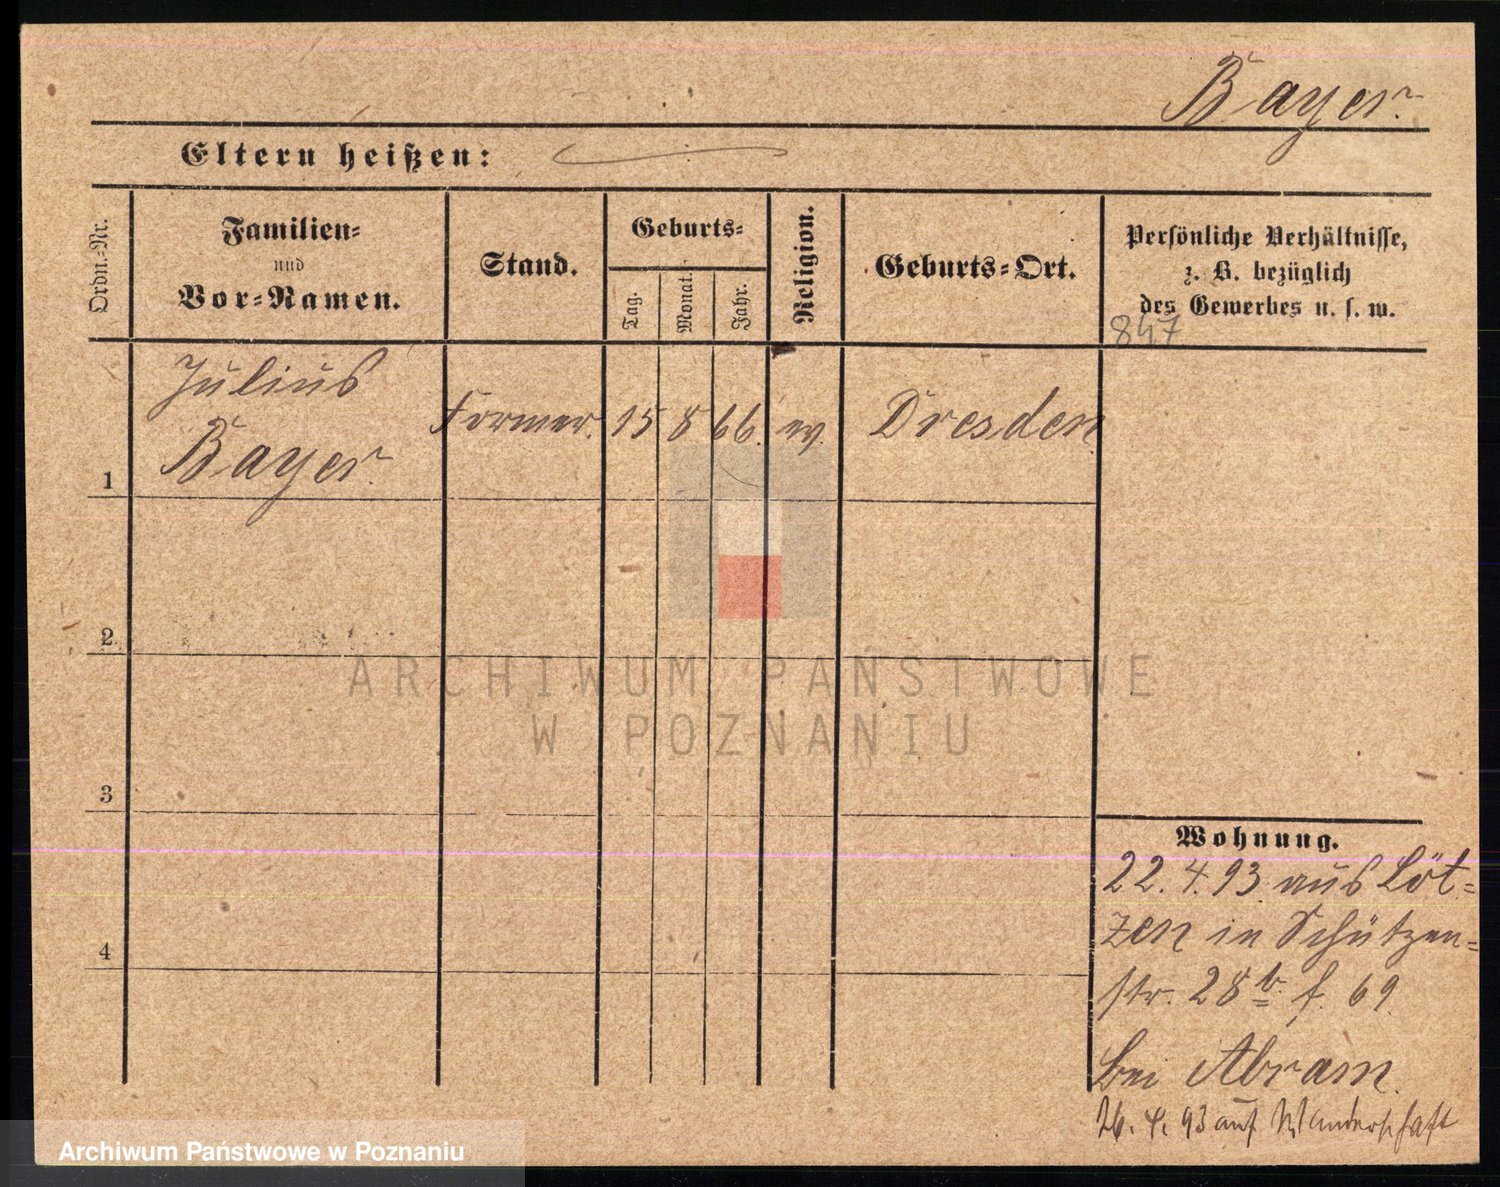 Bayer.
Eltern heißen:
Ordn.-Nr.
Familien-
und
Vor-Namen.
Stand.
Geburts-
Tag.
Monat.
Jahr.
Religion.
Geburts-Ort.
Persönliche Verhältnisse,
z. B. bezüglich
des Gewerbes u. s. w.
847
1
Julius
Bayer.
Former.
15
8
66.
ev.
Dresden
2
3
4
Wohnung.
22.4.93 aus Löt-
zen in Schützen-
str. 28 b. f. 69.
bei Abram.
26. 4. 93 auf Wanderschaft
ARCHIWUM PAŃSTWOWE
W POZNANIU
Archiwum Państwowe w Poznaniu